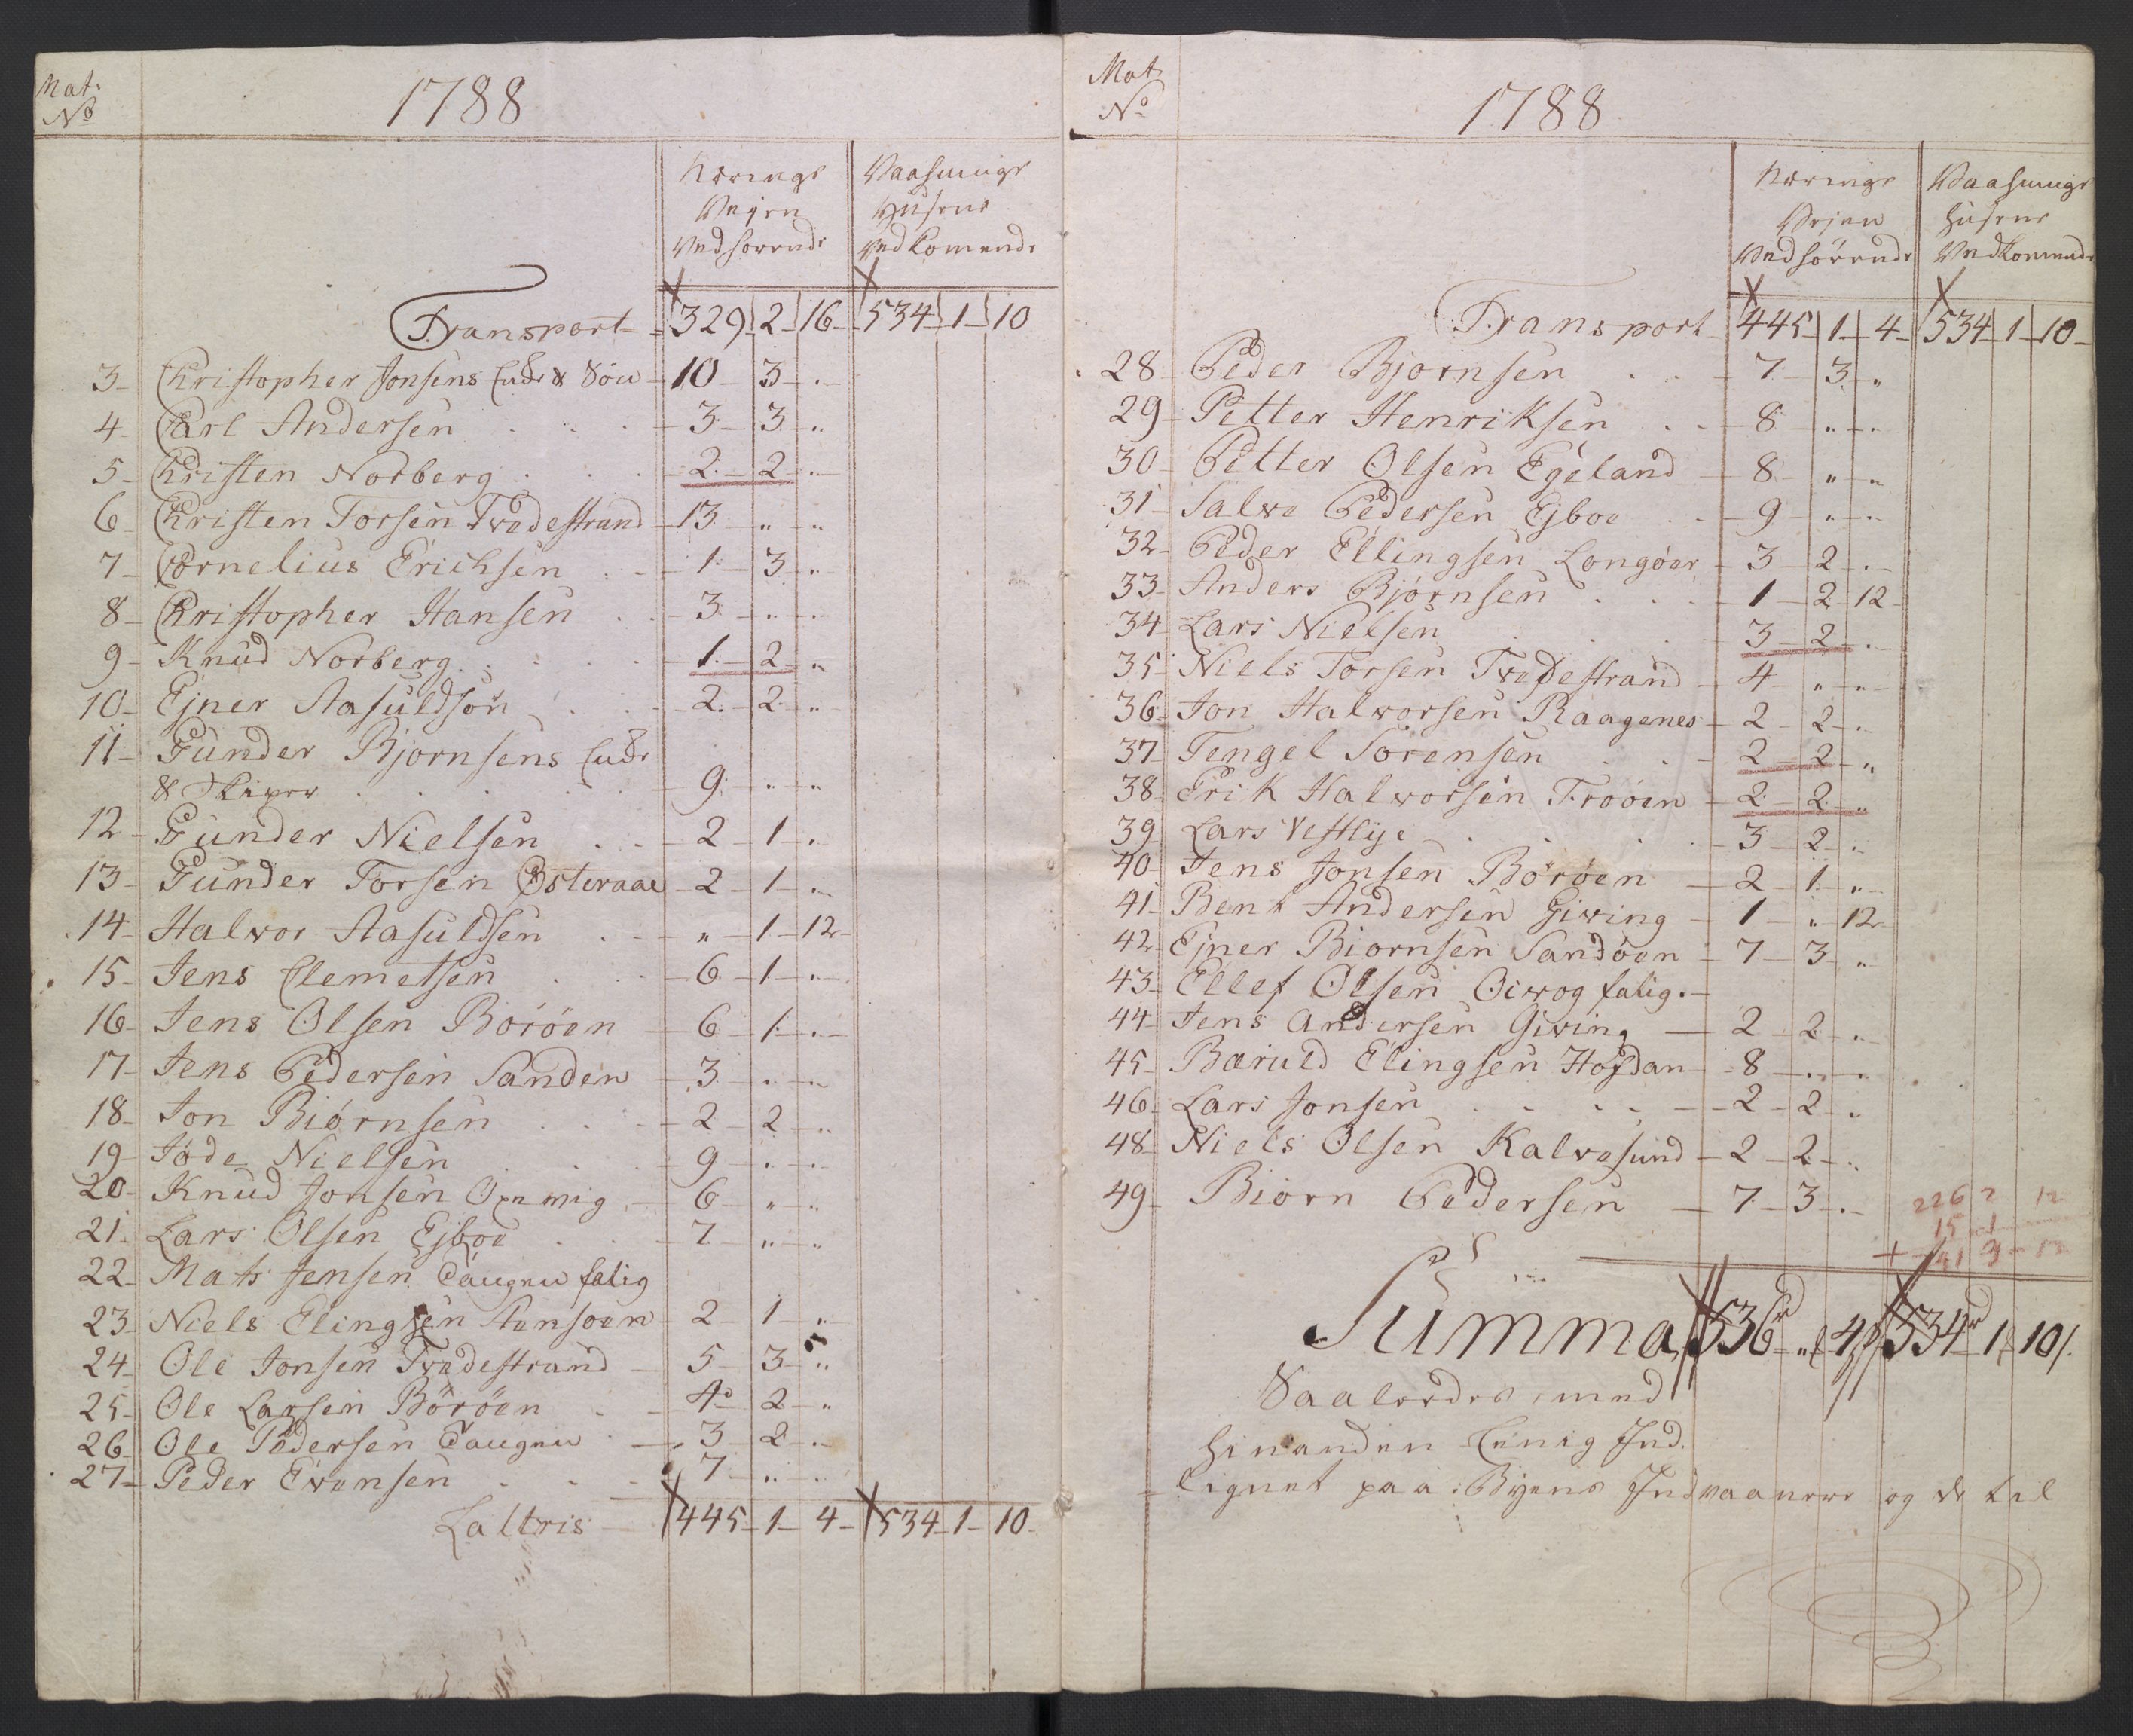 Mat:
No
1788
Nærings
Vejen
Vedkommende
Vaanings
Husene
Vedkomende
Transport 329 2 16 534 1 10
3 Christopher Jonsens & Søn 10 3 "
4 Carl Andersen 3 3 "
5 Christen Norberg 2 2 "
6 Christen Torsen Tvedestrand 13 " "
7 Cornelius Erichsen 1 3 "
8 Christopher Hansen 3 " "
9 Knud Norberg 1 2 "
10 Ejner Aasuldsøn 2 2 "
11 Gunder Bjornsens
& 9 " "
12 Gunder Nielsen 2 1 "
13 Gunder Torsen Østeraae 2 1 "
14 Halvor Aasuldsen " 1 12
15 Jens Clemetsen 6 1 "
16 Jens Olsen Borøen 6 1 "
17 Jens Pedersen Sanden 3 " "
18 Jon Biørnsen 2 2 "
19 Jøde Nielsen 9 " "
20 Knud Jonsen 6 " "
21 Lars Olsen Ejboe 7 " "
22 Mats Jensen Haugen falig
23 Niels Elingsen 2 1 "
24 Ole Jonsen Tvedestrand 5 3 "
25 Ole Larsen Børøen 4 2 "
26 Ole Pedersen Haugen 3 2 "
27 Peder Evensen 7 " "
Laltris 445 1 4 534 1 10
Mat:
No
1788
Nærings
Vejen
Vedkommende
Vaanings
Husene
Vedkomende
Transport 445 1 4 534 1 10
28 Peder Bjornsen 7 3 "
29 Petter Henriksen 8 " "
30 Petter Olsen Egeland 8 " "
31 Salve Pedersen Ejboe 9 " "
32 Peder Ellingsen Longøer 3 2 "
33 Anders Bjørnsen 1 2 12
34 Lars Nielsen 3 2 "
35 Niels Torsen Tvedestrand 4 " "
36 Jon Halvorsen Raagenes 2 2 "
37 Tengel Sørensen 2 2 "
38 Erik Halvorsen Froøen 2 2 "
39 Lars Vestlye 3 2 "
40 Jens Jonsen Børøen 2 1 "
41 Bent Andersen Giving 1 " 12
42 Ejner Biornsen Sandøen 7 3 "
43 Ellef Olsen falig
44 Jens Andersen Giving 2 2 "
45 Bæruld Elingsen 8 " "
46 Lars Jonsen 2 2 "
48 Niels Olsen Kalvesund 2 2 "
49 Biørn Pedersen 7 3 "
226 2 12
15 1
41 3
Summa 536 " 4 534 1 10
Saaledes, med
hinanden Eenig Ind
lignet paa Byens Indvaanere og til